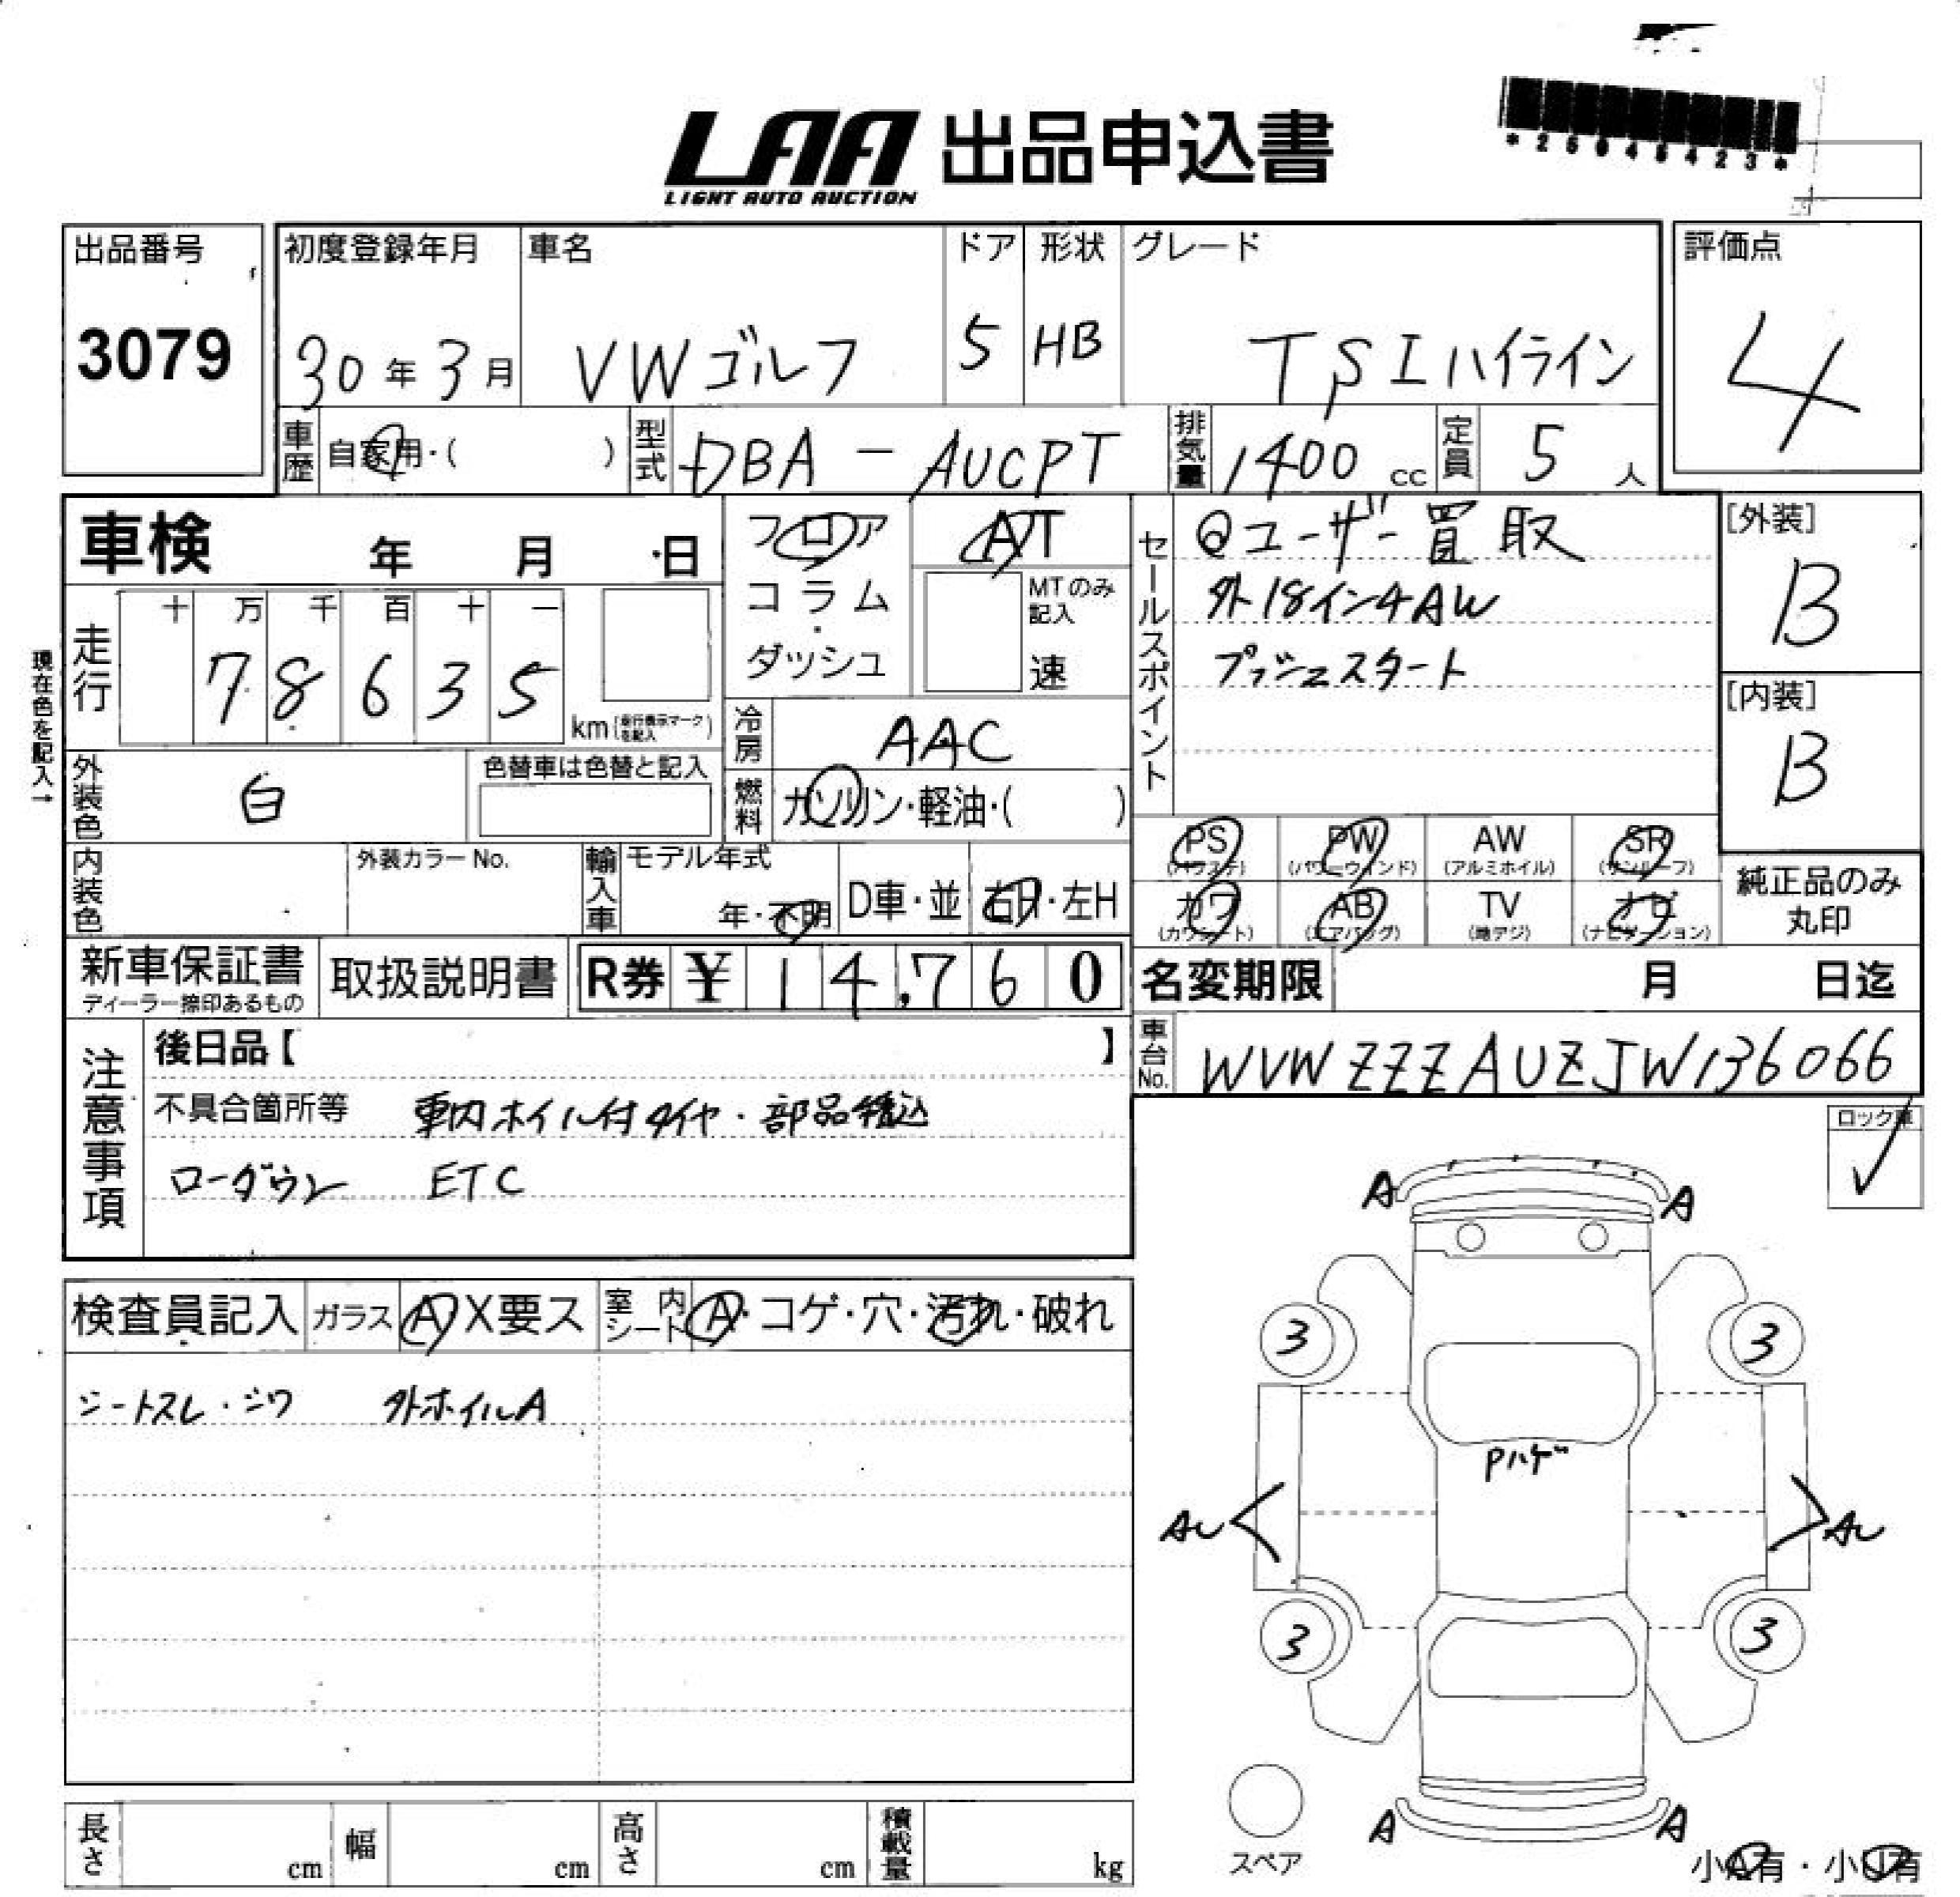 *25045423*
LAA 出品申込書
LIGHT AUTO AUCTION
出品番号 初度登録年月 車名 ドア 形状 グレード 評価点
3079 30年3月 VWゴルフ 5 HB TSIハイライン 4
車歴 自家用・( ) 型式 DBA-AUCPT 排気量 1400 cc 定員 5 人
車検 年 月 日 フロア AT セールスポイント @ユーザー買取 [外装]
コラム・ダッシュ MTのみ記入 速 外18インチAW B
現在色を記入→
走行 十 万 千 百 十 一 プッシュスタート [内装]
78635 km(走行表示マークを記入) B
冷房 AAC
外装色 白 色替車は色替と記入 燃料 ガソリン・軽油・( )
PS (パワステ) PW (パワーウィンド) AW (アルミホイル) SR (サンルーフ)
内装色 外装カラーNo. 輸入車 モデル年式 年・不明 D車・並 右H・左H
カワ (カワシート) AB (エアバッグ) TV (地デジ) ナビ (ナビゲーション) 純正品のみ丸印
新車保証書 ディーラー捺印あるもの 取扱説明書 R券 ¥ 14,760 名変期限 月 日迄
注意事項 後日品【 】 車台No. WVWZZZAUZJW136066
不具合箇所等 車内ホイル付タイヤ・部品積込 ロック車
ローダウン ETC
A A
検査員記入 ガラス A X要ス 室内シート A・コゲ・穴・汚れ・破れ
3 3
シートスレ・シワ 外ホイルA
Pハゲ
AU AU
3 3
A A
スペア
長さ cm 幅 cm 高さ cm 積載量 kg
小A有・小U有